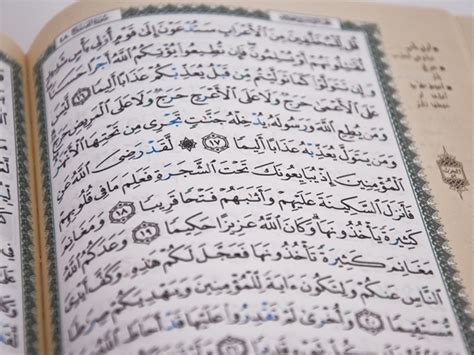 قُل لِّلْمُخَلَّفِينَ مِنَ ٱلْأَعْرَابِ سَتُدْعَوْنَ إِلَىٰ قَوْمٍ أُو۟لِى بَأْسٍ شَدِيدٍ
تُقَٰتِلُونَهُمْ أَوْ يُسْلِمُونَ فَإِن تُطِيعُوا۟ يُؤْتِكُمُ ٱللَّهُ أَجْرًا حَسَنًا
وَإِن تَتَوَلَّوْا۟ كَمَا تَوَلَّيْتُم مِّن قَبْلُ يُعَذِّبْكُمْ عَذَابًا أَلِيمًا ١٦ لَّيْسَ
عَلَى ٱلْأَعْمَىٰ حَرَجٌ وَلَا عَلَى ٱلْأَعْرَجِ حَرَجٌ وَلَا عَلَى ٱلْمَرِيضِ حَرَجٌ
وَمَن يُطِعِ ٱللَّهَ وَرَسُولَهُۥ يُدْخِلْهُ جَنَّٰتٍ تَجْرِى مِن تَحْتِهَا ٱلْأَنْهَٰرُ
وَمَن يَتَوَلَّ يُعَذِّبْهُ عَذَابًا أَلِيمًا ١٧ ۞ لَّقَدْ رَضِىَ ٱللَّهُ عَنِ
ٱلْمُؤْمِنِينَ إِذْ يُبَايِعُونَكَ تَحْتَ ٱلشَّجَرَةِ فَعَلِمَ مَا فِى قُلُوبِهِمْ
فَأَنزَلَ ٱلسَّكِينَةَ عَلَيْهِمْ وَأَثَٰبَهُمْ فَتْحًا قَرِيبًا ١٨ وَمَغَانِمَ
كَثِيرَةً يَأْخُذُونَهَا وَكَانَ ٱللَّهُ عَزِيزًا حَكِيمًا ١٩ وَعَدَكُمُ ٱللَّهُ
مَغَانِمَ كَثِيرَةً تَأْخُذُونَهَا فَعَجَّلَ لَكُمْ هَٰذِهِۦ وَكَفَّ أَيْدِىَ
ٱلنَّاسِ عَنكُمْ وَلِتَكُونَ ءَايَةً لِّلْمُؤْمِنِينَ وَيَهْدِيَكُمْ صِرَٰطًا
مُّسْتَقِيمًا ٢٠ وَأُخْرَىٰ لَمْ تَقْدِرُوا۟ عَلَيْهَا قَدْ أَحَاطَ ٱللَّهُ